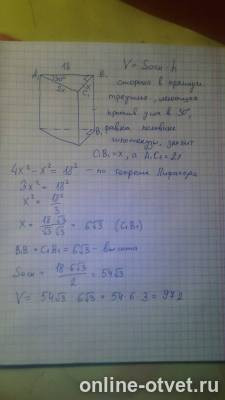 18
A₁ B₁
30°
2x x
C₁
B
V = Sосн · h
сторона в прямоуг.
треугол., лежащая
против угла в 30°,
равна половине
гипотенузы, значит
C₁B₁ = x, а A₁C₁ = 2x
4x² - x² = 18² - по теореме Пифагора
3x² = 18²
x² = 18²/3
x = 18·√3/√3·√3 = 6√3 (C₁B₁)
B₁B = C₁B₁ = 6√3 - высота
Sосн = 18·6√3/2 = 54√3
V = 54√3 · 6√3 = 54·6·3 = 972
online-otvet.ru